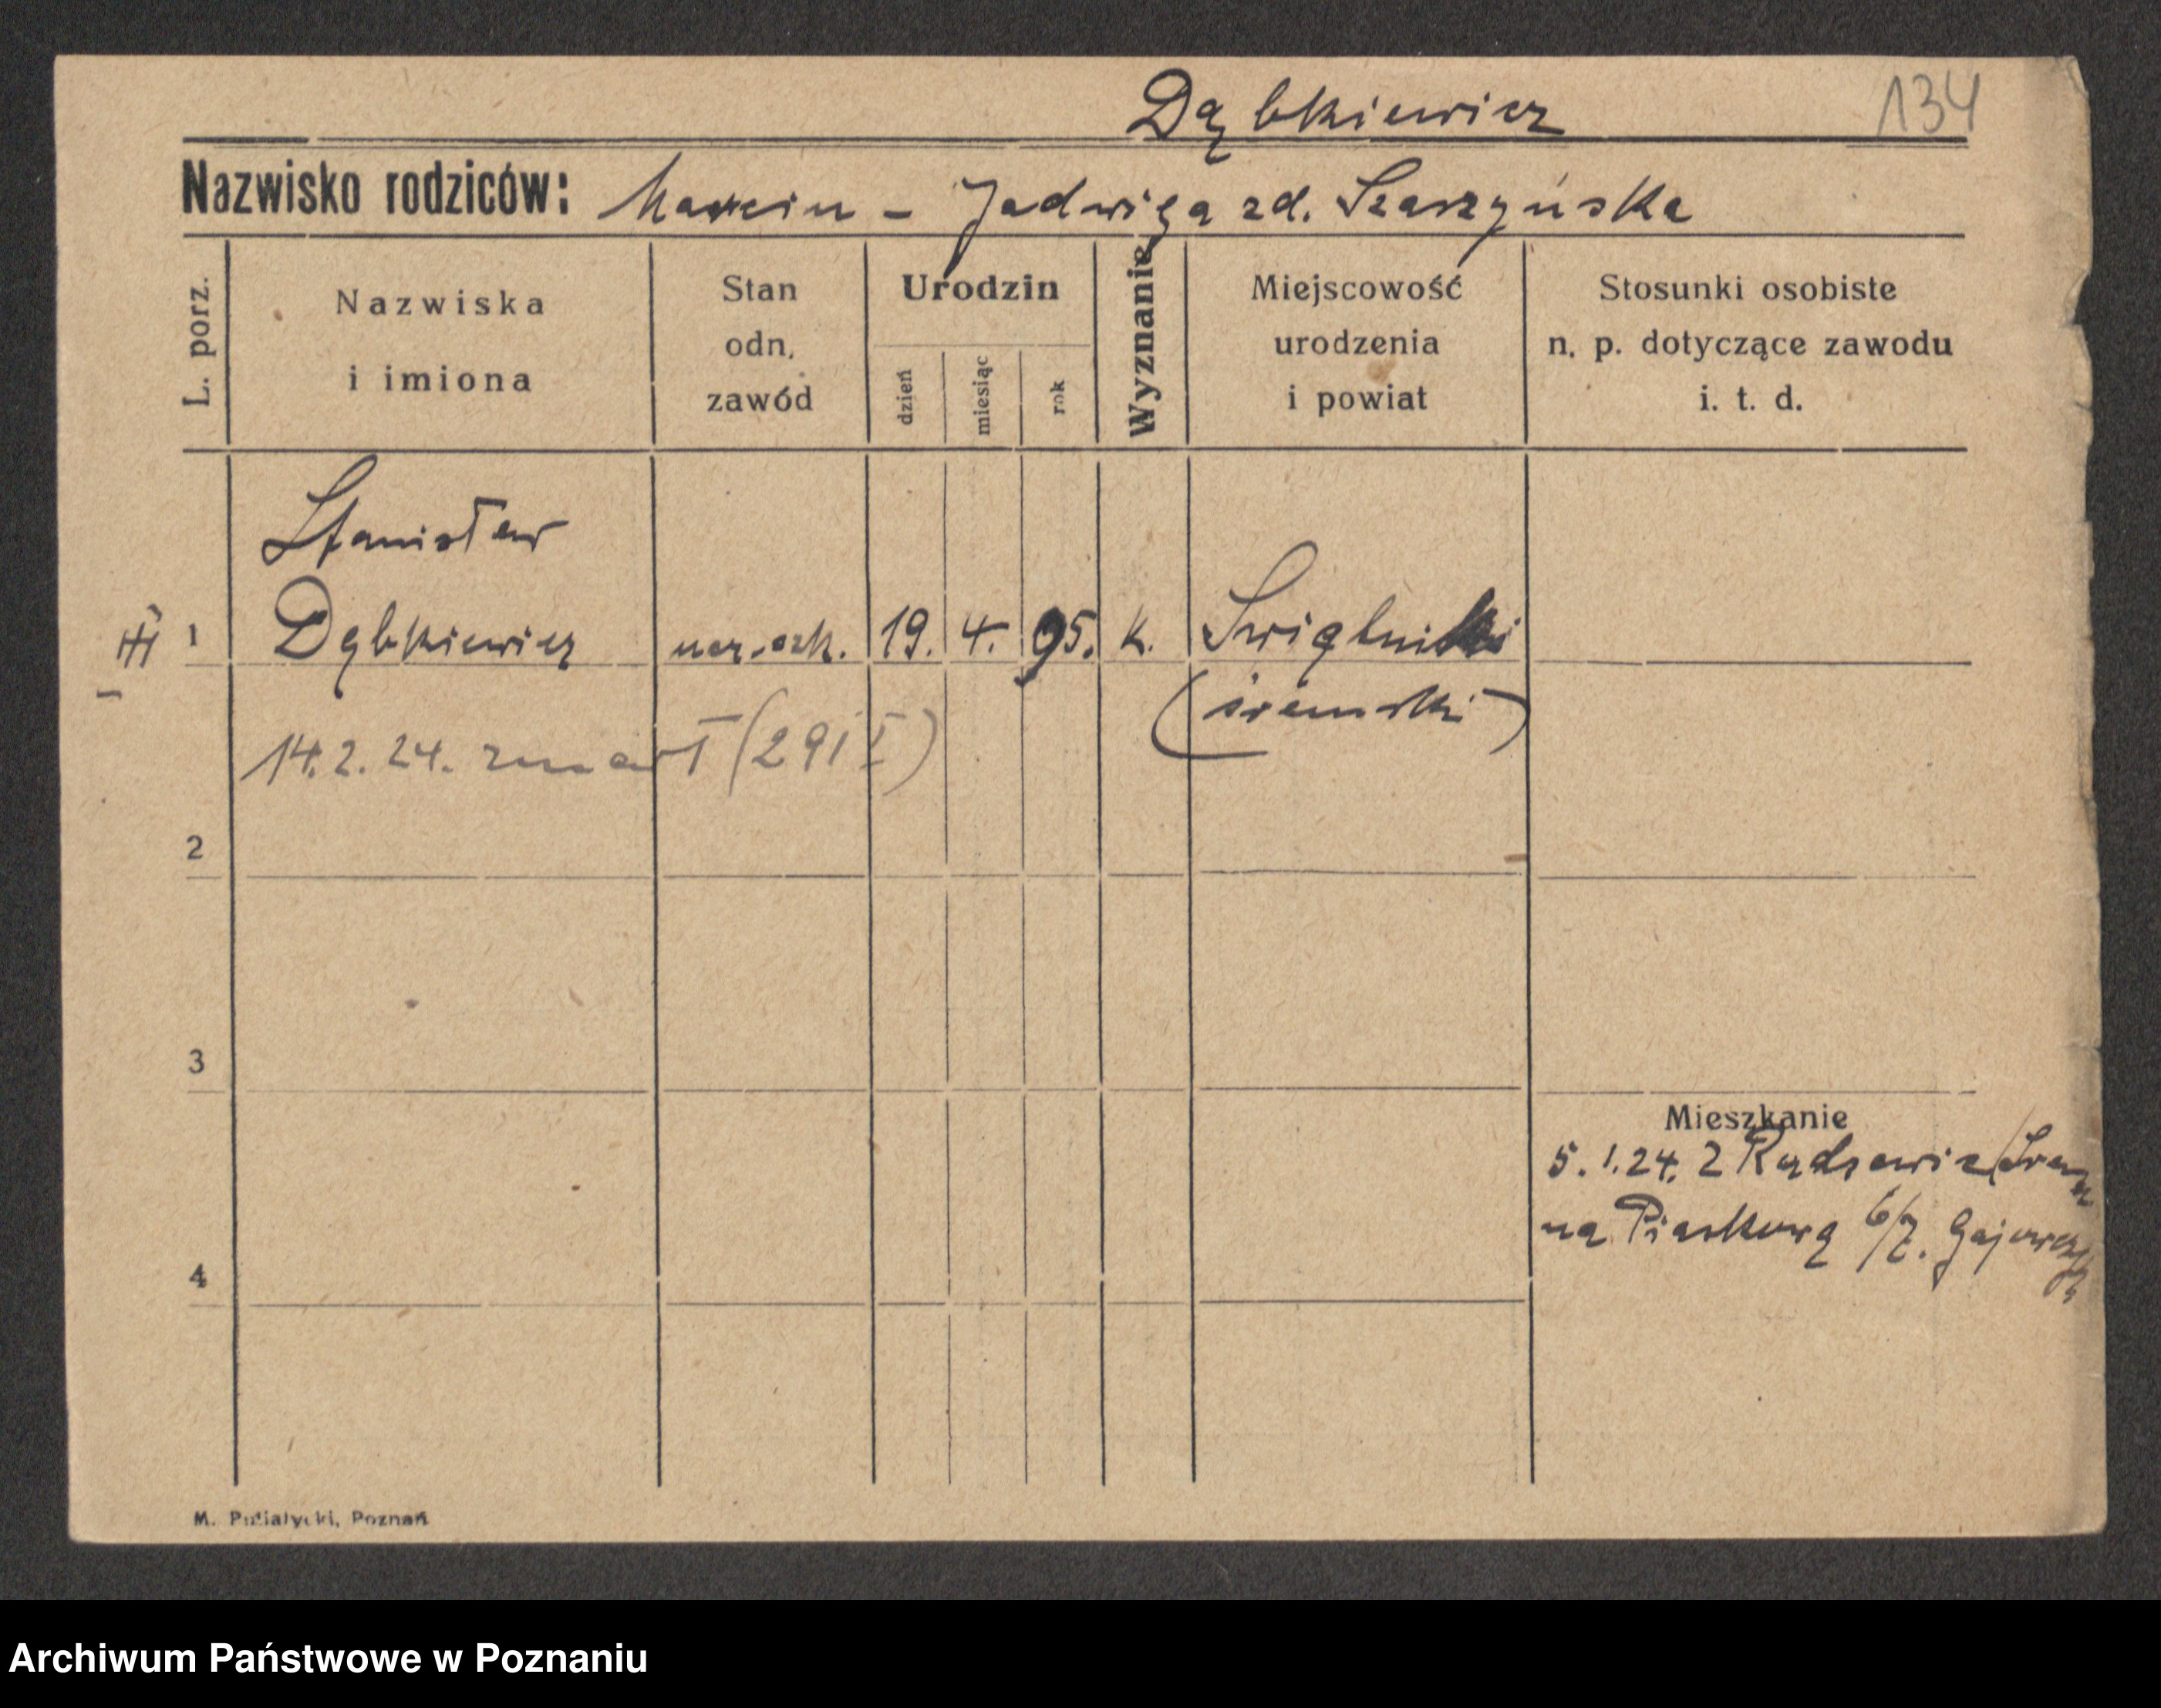 Dąbkiewicz
134
Nazwisko rodziców: Marcin - Jadwiga zd. Szaszyńska
L. porz.
Nazwiska
i imiona
Stan
odn.
zawód
Urodzin
dzień
miesiąc
rok
Wyznanie
Miejscowość
urodzenia
i powiat
Stosunki osobiste
n. p. dotyczące zawodu
i. t. d.
Stanisław
1 Dąbkiewicz ucz. szk. 19. 4. 95. k. Świątniki
(śremski)
14.2.24. zmarł (291 I)
2
3
Mieszkanie
5. 1. 24. z Radzewic/Śrem
na Piaskową 6/7.
4
M. Putiatycki, Poznań
Archiwum Państwowe w Poznaniu